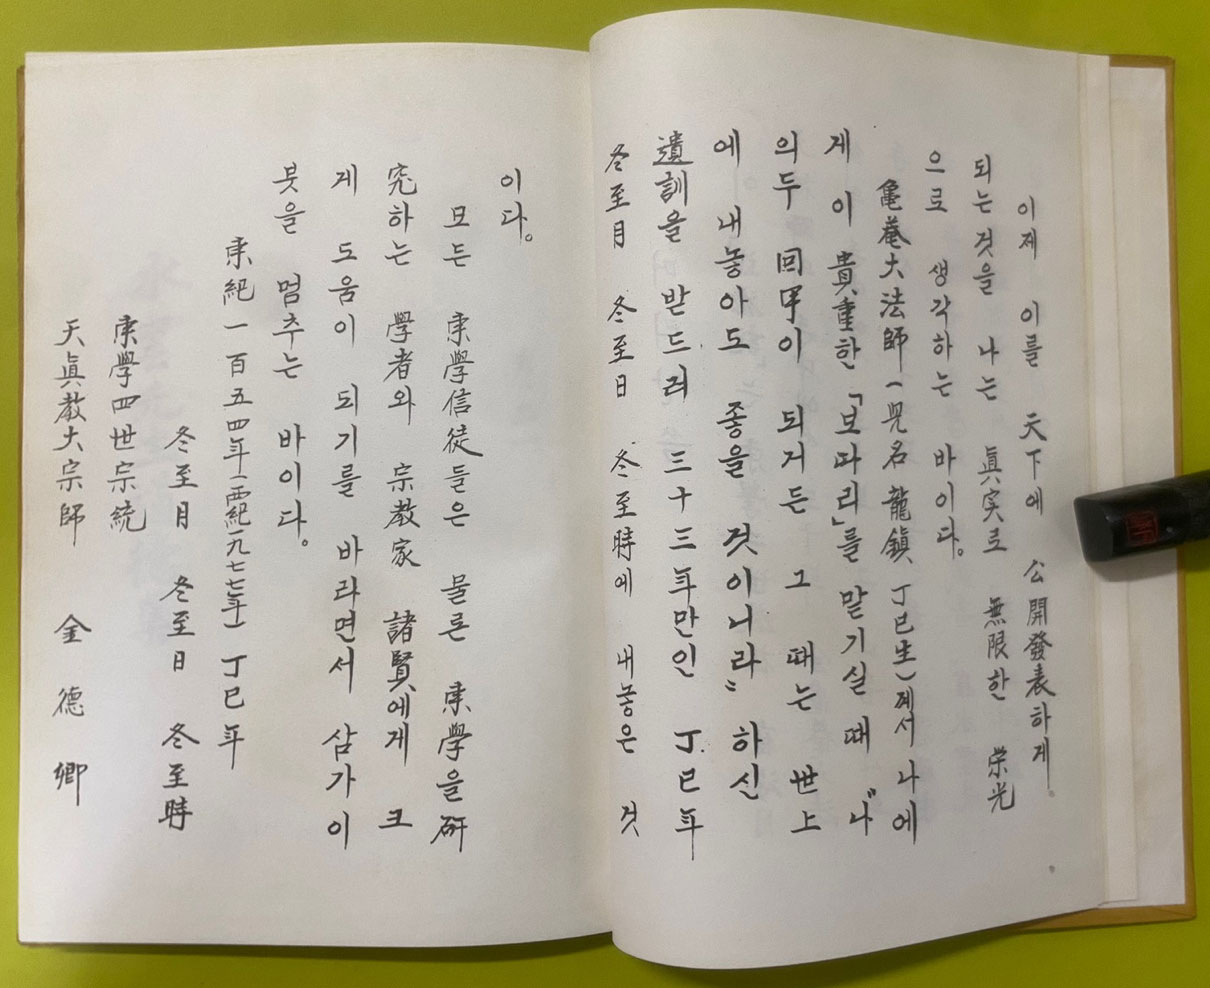 이제 이를 天下에 公開發表하게
되는것을 나는 眞実로 無限한 栄光
으로 생각하는 바이다。
龜菴大法師(兒名 龍鎭 丁巳生)께서 나에
게 이 貴重한「보따리」를 맡기실 때 "나
의두 回甲이 되거든 그 때는 世上
에 내놓아도 좋을 것이니라" 하신
遺訓을 받드러 三十三年만인 丁巳年
冬至月 冬至日 冬至時에 내놓은 것
이다。
모든 東学信徒들은 물론 東學을 研
究하는 學者와 宗教家 諸賢에게 크
게 도움이 되기를 바라면서 삼가이
붓을 멈추는 바이다。
東紀一百五四年(西紀一九七七年) 丁巳年
冬至月 冬至日 冬至時
東學四世宗統
天眞教大宗師 金德卿